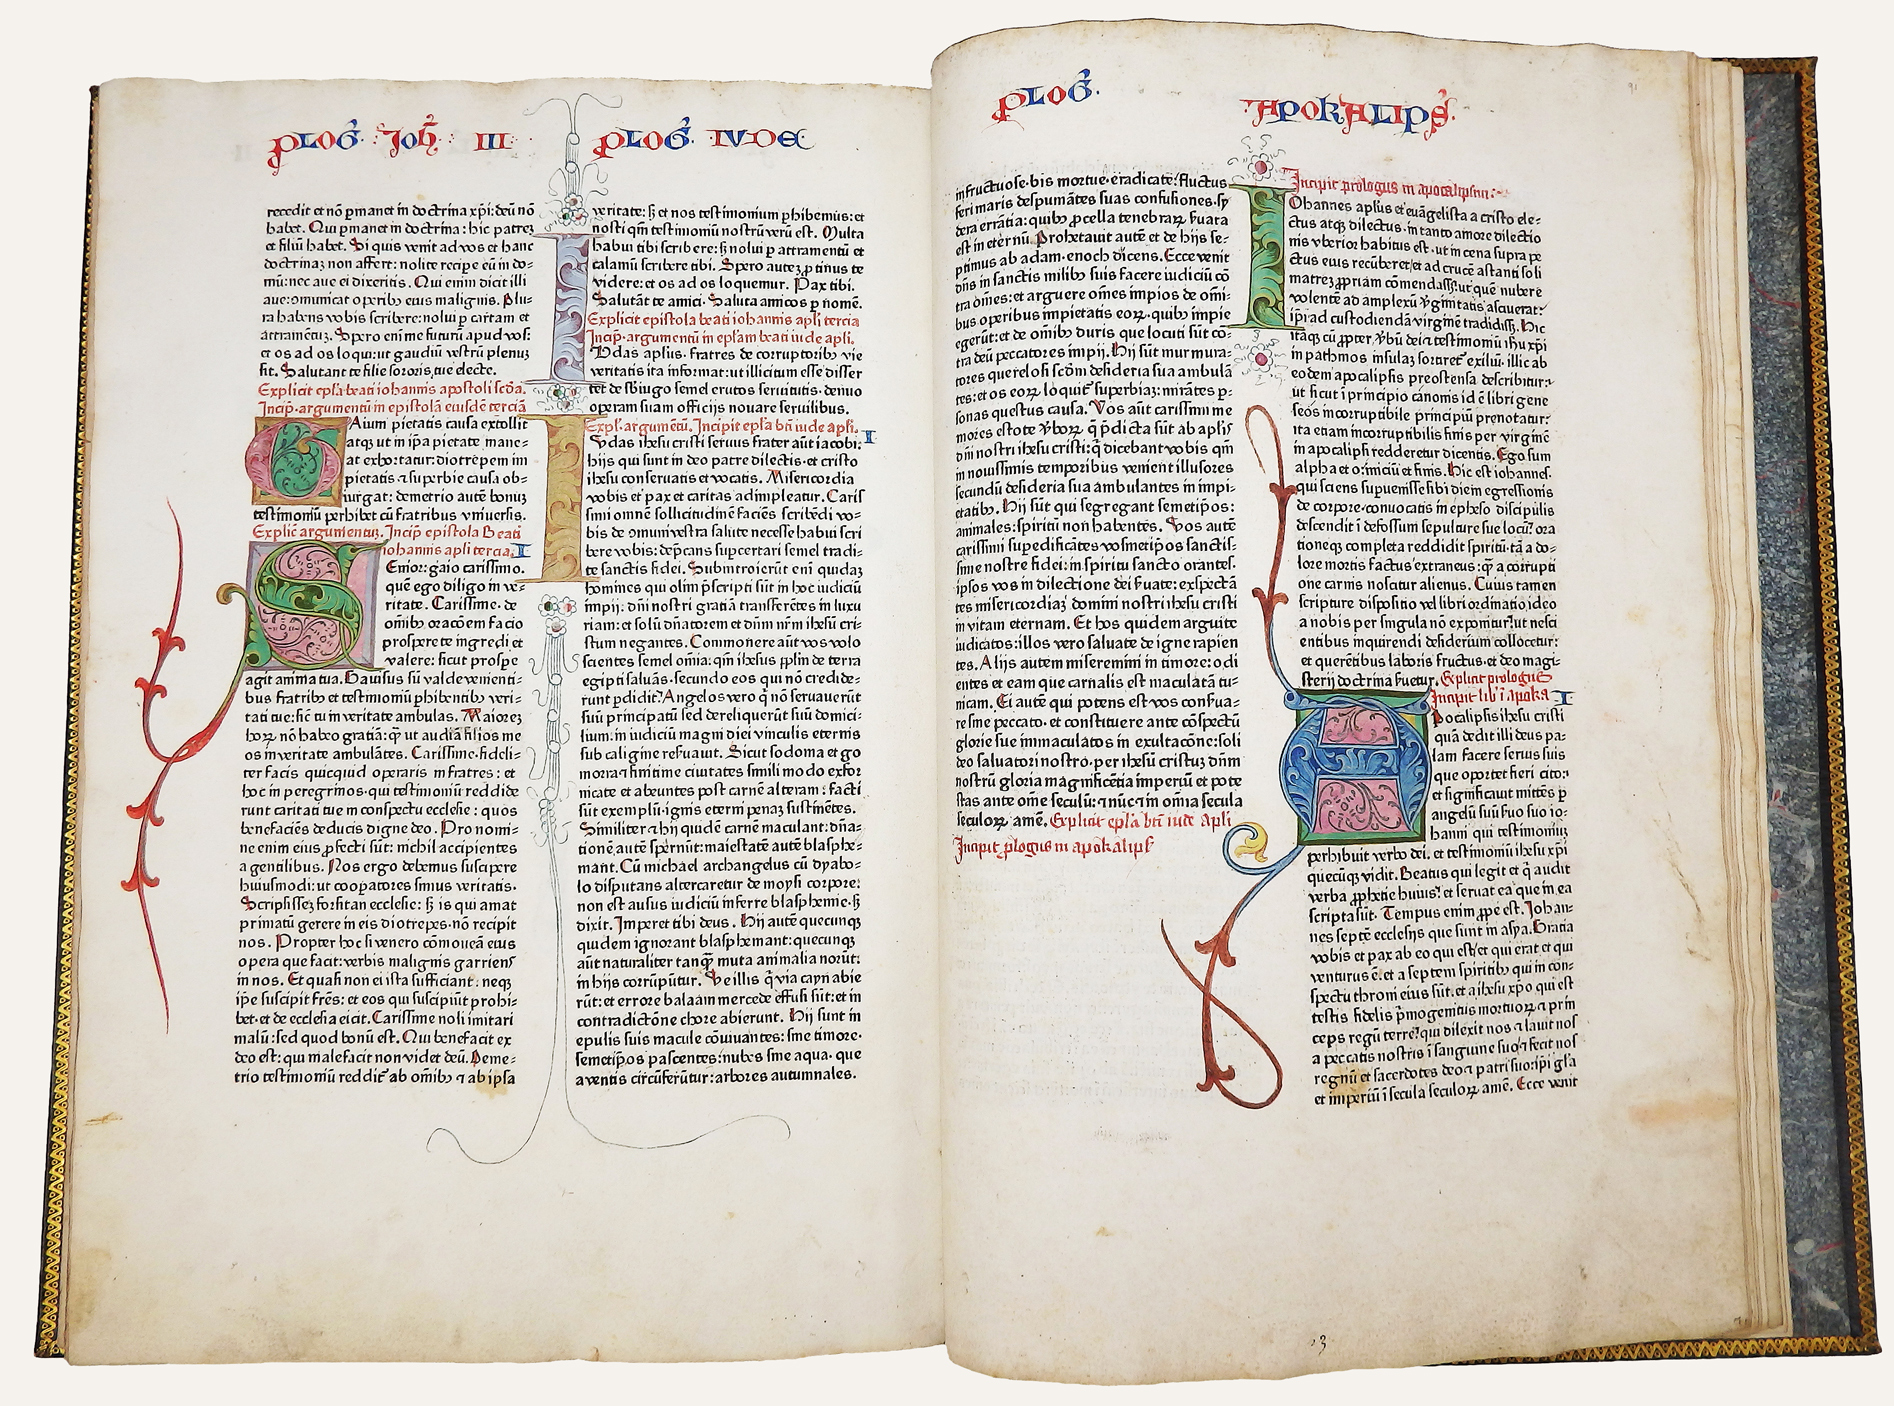 PLOG̃. Joh̃. III
recedit et nō ꝑmanet in doctrina xp̄i: deū nō
habet. Qui ꝑmanet in doctrina: hic patreꝫ
et filiū habet. Si quis venit ad vos et hanc
doctrinaꝫ non affert: nolite recipe eū in do-
mū: nec aue ei dixeritis. Qui enim dicit illi
aue: ꝯmunicat operibꝫ eius malignis. Plu-
ra habens vobis scribere: nolui ꝑ cartam et
attramētuꝫ. Spero eni me futurū apud vos:
et os ad os loqui: ut gaudiū vestrū plenuꝫ
sit. Salutant te filie sororis tue electe.
Explicit epl̄a beati iohannis apostoli scd̄a.
Incip̄. argumentū in epistolā eiusdē terciā
GAium pietatis causa extollit
atqꝫ ut in ip̄a pietate mane-
at exhortatur: diotrepem im
pietatis ⁊ superbie causa ob-
iurgat: demetrio autē bonuꝫ
testimoniū perhibet cū fratribus vniuersis.
Explic̄ argumentuꝫ. Incip̄ epistola Beati
iohannis apl̄i tercia. I
SEnior: gaio carissimo.
quē ego diligo in ve-
ritate. Carissime. de
om̄ibꝫ orac̄oēm facio
prospere te ingredi et
valere: sicut prospe
agit anima tua. Gauisus sū valde venienti-
bus fratribꝫ et testimoniū ꝑhibentibꝫ veri-
tati tue: sic̄ tu in veritate ambulas. Maioreꝫ
hoꝝ nō habeo gratiā: q̄ꝫ ut audiā filios me
os in veritate ambulātes. Carissime. fideli-
ter facis quicquid operaris in fratres: et
hoc in peregrinos. qui testimoniū reddide
runt caritati tue in conspectu ecclesie: quos
benefaciēs deducis digne deo. Pro nomi-
ne enim eius ꝓfecti sūt: nichil accipientes
a gentilibus. Nos ergo debemus suscipere
huiusmodi: ut cooꝑatores simus veritatis.
Scripsisseꝫ forsitan ecclesie: sꝫ is qui amat
primatū gerere in eis diotrepes. nō recipit
nos. Propter hoc si venero cōmoueā eius
opera que facit: verbis malignis garriens
in nos. Et quasi non ei ista sufficiant: neqꝫ
ip̄e suscipit fr̄es: et eos qui suscipiūt prohi-
bet. et de ecclesia eicit. Carissime noli imitari
malū: sed quod bonū est. Qui benefacit ex
deo est: qui malefacit non videt deū. Deme-
trio testimoniū reddit̄ ab om̄ibꝫ ⁊ ab ipsa
PLOG̃. IVDE
veritate: sꝫ et nos testimonium ꝑhibemus: et
nosti qm̄ testimoniū nostrū verū est. Multa
habui tibi scribere: sꝫ nolui ꝑ attramentū et
calamū scribere tibi. Spero auteꝫ ꝓtinus te
videre: et os ad os loquemur. Pax tibi.
Salutāt te amici. Saluta amicos ꝑ nomē.
Explicit epistola beati iohannis apl̄i tercia
Incip̄. argumentū in epl̄am beati iude apl̄i.
IVdas apl̄us. fratres de corruptoribꝫ vie
veritatis ita informat: ut illicitum esse disser
tet de sb̄iugo semel erutos seruitutis. denuo
operam suam officijs nouare seruilibus.
Expl̄. argumētū. Incipit epl̄a bt̄i iude apl̄i. I
IVdas ihesu cristi seruus frater aūt iacobi.
hijs qui sunt in deo patre dilectis. et cristo
ihesu conseruatis et vocatis. Misericordia
vobis et pax et caritas adimpleatur. Caris
simi omnē sollicitudinē faciēs scribēdi vo-
bis de omni vestra salute necesse habui scri
bere vobis: dep̄cans supcertari semel tradi-
te sanctis fidei. Submtroierūt eni quidaꝫ
homines qui olim p̄scripti sūt in hoc iudiciū
impij: dn̄i nostri gratiā transferētes in luxu
riam: et solū dn̄atorem et dn̄m nr̄m ihesū cri-
stum negantes. Commonere aūt vos volo
scientes semel omīa: qm̄ ihesus ꝓplm de terra
egipti saluās. secundo eos qui nō credide-
runt ꝑdidit. Angelos vero q̄ nō seruauerūt
suū principatū sed dereliquerūt suū domici-
lium: in iudiciū magni diei vinculis eternis
sub caligine reseruauit. Sicut sodoma et go
morra ⁊ finitime ciuitates simili modo exfor
nicate et abeuntes post carnē alteram: facti
sūt exemplū. ignis eterni penaꝫ sustinētes.
Similiter ⁊ hij quidē carnē maculant: dn̄a-
tionē autē spernūt: maiestatē autē blasphe-
mant. Cū michael archangelus cū dyabo-
lo disputans altercaretur de moysi corpore:
non est ausus iudiciū inferre blasphemie. sꝫ
dixit. Imperet tibi deus. Hij autē quecunqꝫ
quidem ignorant blasphemant: quecunqꝫ
aūt naturaliter tanq̄ꝫ muta animalia norūt:
in hijs corrūpūtur. Ve illis q̄ via cayn abie
rūt: et errore balaam mercede effusi sūt: et in
contradictōne chore abierunt. Hij sunt in
epulis suis macule cōuiuantes: sine timore.
semetip̄os pascentes: nubes sine aqua. que
a ventis circūferūtur: arbores autumnales.
PLOG̃.
infructuose. bis mortue. eradicate: fluctus
feri maris despumātes suas confusiones. sy
dera errātia: quibꝫ ꝓcella tenebraꝝ s̄uata
est in eternū. Prohetauit autē et de hijs se-
ptimus ab adam. enoch dicens. Ecce venit
dn̄s in sanctis milibꝫ suis facere iudiciū cō
tra om̄es: et arguere om̄es impios de om̄i-
bus operibus impietatis eoꝝ. quibꝫ impie
egerūt: et de om̄ibꝫ duris que locuti sūt cō-
tra deū peccatores impij. Hij sūt murmura-
tores querelosi scd̄m desideria sua ambulā
tes: et os eoꝝ loquit̄ superbiaꝫ: mirātes ꝑ-
sonas questus causa. Vos aūt carissimi me
mores estote v̄boꝝ q̄ p̄dicta sūt ab apl̄is
dn̄i nostri ihesu cristi: q̄ dicebant vobis qm̄
in nouissimis temporibus venient illusores
secundū desideria sua ambulantes in impi-
etatibꝫ. Hij sūt qui segregant semetip̄os:
animales: spiritū non habentes. Vos autē
carissimi supedificātes vosmetip̄os sanctis-
sime nostre fidei: in spiritu sancto orantes.
ipsos vos in dilectione dei s̄uate: exspectā
tes misericordiaꝫ domini nostri ihesu cristi
in vitam eternam. Et hos quidem arguite
iudicatos: illos vero saluate de igne rapien
tes. Alijs autem miseremini in timore: odi
entes et eam que carnalis est maculatā tu-
nicam. Ei autē qui potens est vos conserua-
re sine peccato. et constituere ante cōspectū
glorie sue immaculatos in exultacōne: soli
deo saluatori nostro. per ihesū cristuꝫ dn̄m
nostrū gloria magnificētia imperiū et pote
stas ante om̄e seculū: ⁊ nūc ⁊ in om̄ia secula
seculoꝝ amē. Explicit epl̄a bt̄i iude apl̄i
Incipit ꝓlogus in apokalips̄
APOKALIPS̃.
Incipit prologus in apocalipsim:
IOhannes apl̄us et euāgelista a cristo ele-
ctus atqꝫ dilectus. in tanto amore dilectio
nis vberior habitus est. ut in cena supra pe
ctus eius recūberet: et ad crucē astanti soli
matreꝫ ꝓpriam cōmendass̄. ut quē nubere
volentē ad amplexū v̄ginitatis asciuerat:
ip̄i ad custodiendā virginē tradidiss̄. Hic
itaqꝫ cū ꝓpter v̄bū dei ⁊ testimoniū ihū xp̄i
in pathmos insulaꝫ sortiret̄ exiliū. illic ab
eodem apocalipsis preostensa describitur:
ut sicut i principio canonis id ē libri gene
seos incorruptibile principiū prenotatur:
ita etiam incorruptibilis finis per virginē
in apocalipsi redderetur dicentis. Ego sum
alpha et o: iniciū et finis. Hic est iohannes.
qui sciens supuenisse sibi diem egressionis
de corpore. conuocatis in epheso discipulis
descendit ī defossum sepulture sue locū: ora
tioneqꝫ completa reddidit spiritū. tā a do-
lore mortis factus extraneus: q̄ꝫ a corrupti
one carnis noscitur alienus. Cuius tamen
scripture dispositio vel libri ordinatio. ideo
a nobis per singula nō exponitur. ut nesci
entibus inquirendi desiderium collocetur:
et querētibus laboris fructus. et deo magi-
sterij doctrina seruetur. Explicit prologus
Incipit lib̄ i apoka I
APocalipsis ihesu cristi
quā dedit illi deus pa-
lam facere seruis suis
que oportet fieri cito:
et significauit mittēs ꝑ
angelū suū seruo suo io-
hanni qui testimoniuꝫ
perhibuit verbo dei. et testimoniū ihesu xp̄i
quecūqꝫ vidit. Beatus qui legit et q̄ audit
verba ꝓphetie huius: et seruat ea que in ea
scripta sūt. Tempus enim ꝓpe est. Iohan-
nes septē ecclesijs que sunt in asya. Gratia
vobis et pax ab eo qui est: et qui erat et qui
venturus ē. et a septem spiritibꝫ qui in con-
spectu throni eius sūt. et a ihesu xp̄o qui est
testis fidelis p̄mogenitus mortuoꝝ ⁊ prin
ceps regū terre: qui dilexit nos ⁊ lauit nos
a peccatis nostris ī sanguine suo: ⁊ fecit nos
regnū et sacerdotes deo ⁊ patri suo: ip̄i gl̄a
et imperiū ī secula seculoꝝ amē. Ecce venit